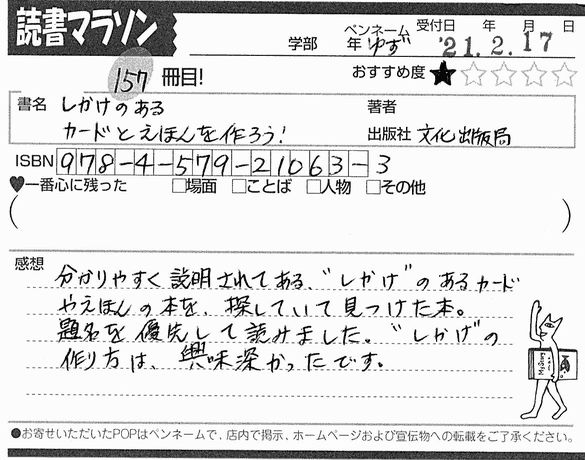 読書マラソン
学部 年 ペンネーム ゆず 受付日 年 月 日 '21.2.17
157 冊目! おすすめ度 ★☆☆☆☆
書名 しかけのある 著者
カードとえほんを作ろう! 出版社 文化出版局
ISBN 978-4-579-21063-3
♥一番心に残った □場面 □ことば □人物 □その他
( )
感想
分かりやすく説明されてある、"しかけ"のあるカード
やえほんの本を、探していて見つけた本。
題名を優先して読みました。"しかけ"の
作り方は、興味深かったです。
●お寄せいただいたPOPはペンネームで、店内で掲示、ホームページおよび宣伝物への転載をご了承ください。